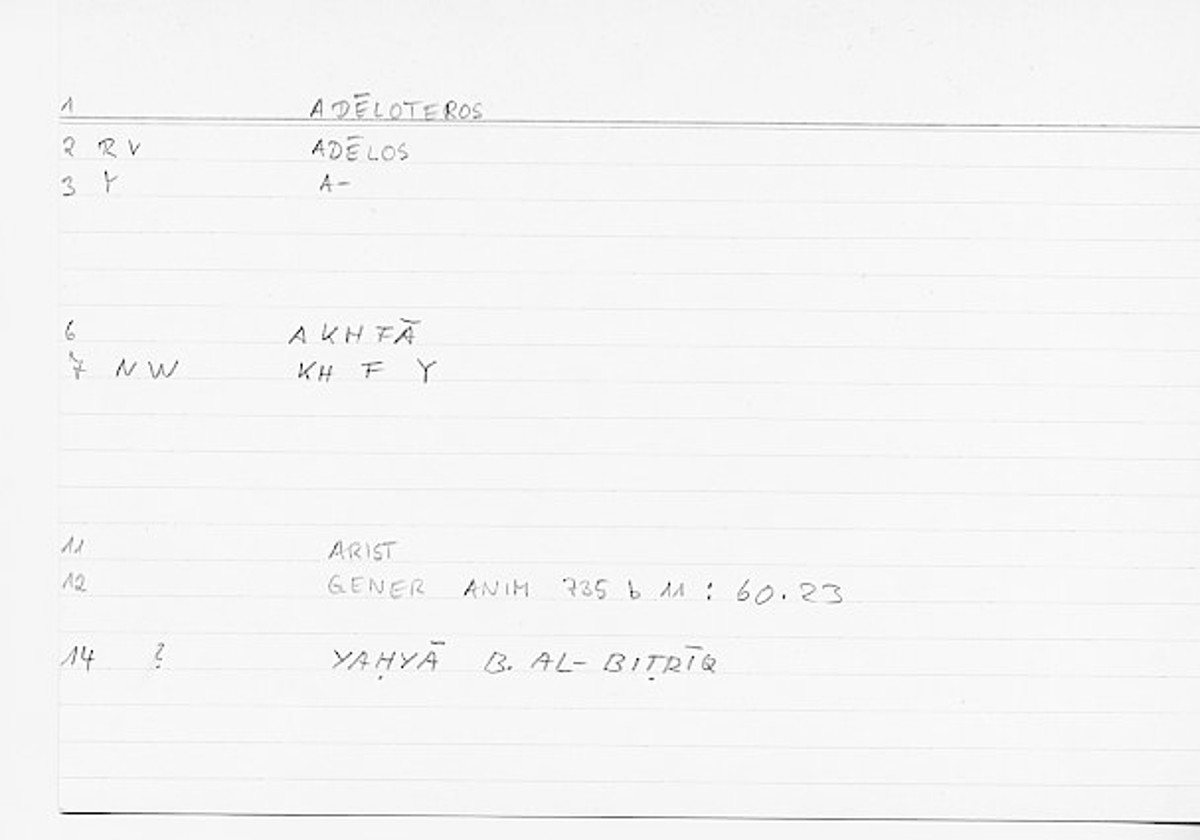 1 ADĒLOTEROS
2 R V ADĒLOS
3 Y A-
6 AKHFĀ
7 N W KH F Y
11 ARIST
12 GENER ANIM 735 b 11 : 60.23
14 ? YAḤYĀ B. AL-BIṬRĪQ